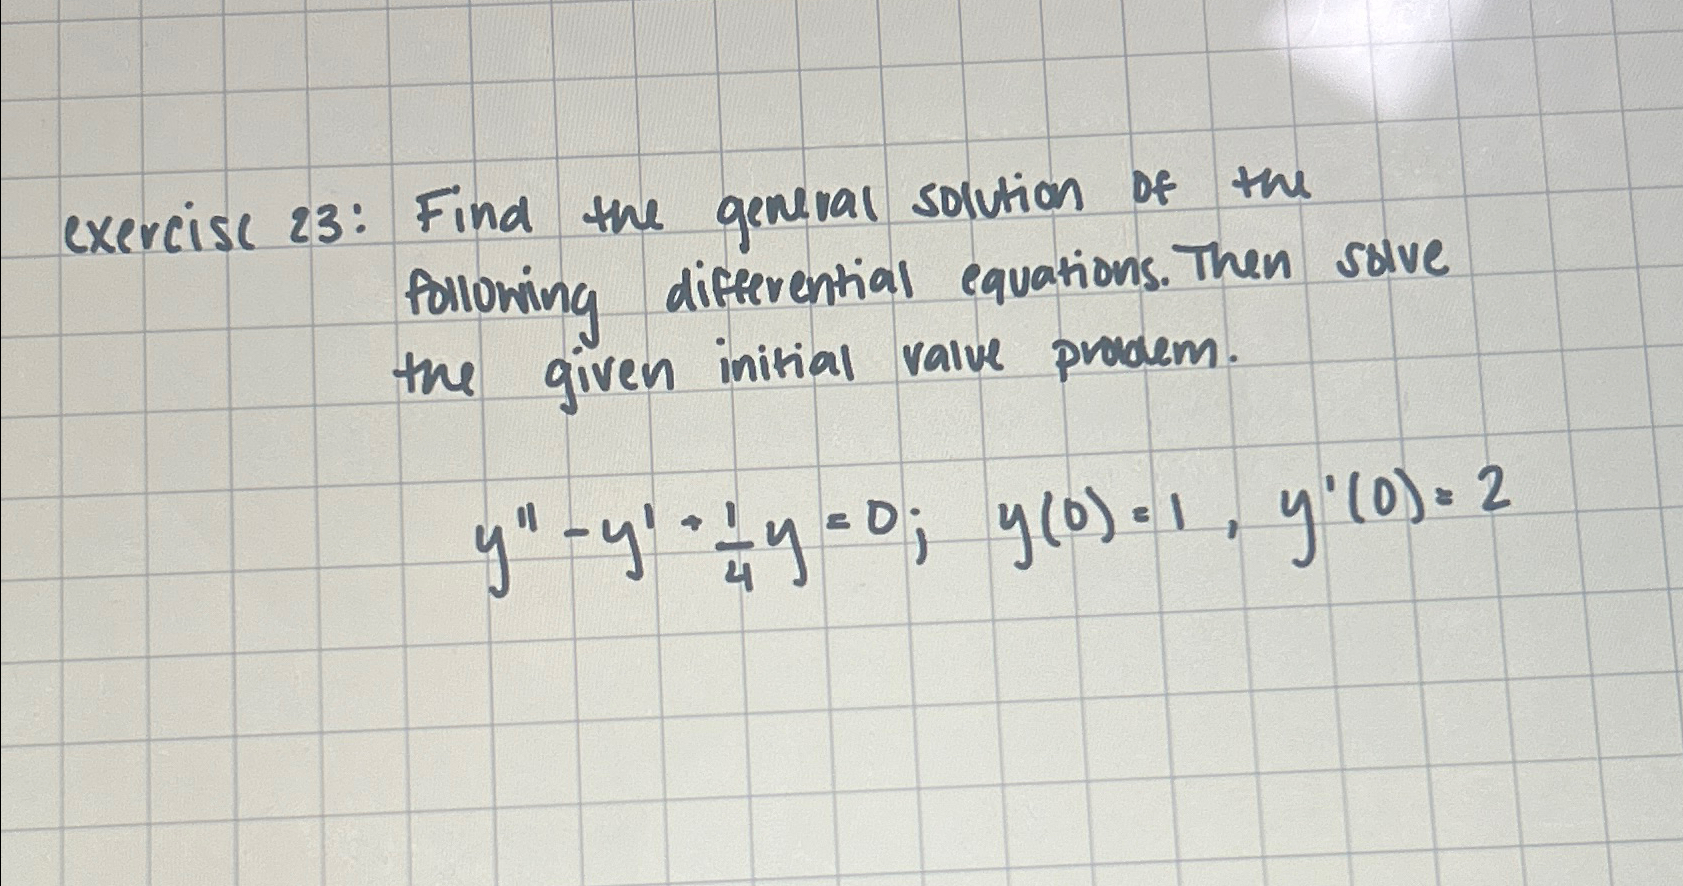 exercise 23: Find the general solution of the
following differential equations. Then solve
the given initial value problem.
y'' - y' + 1/4 y = 0; y(0) = 1, y'(0) = 2